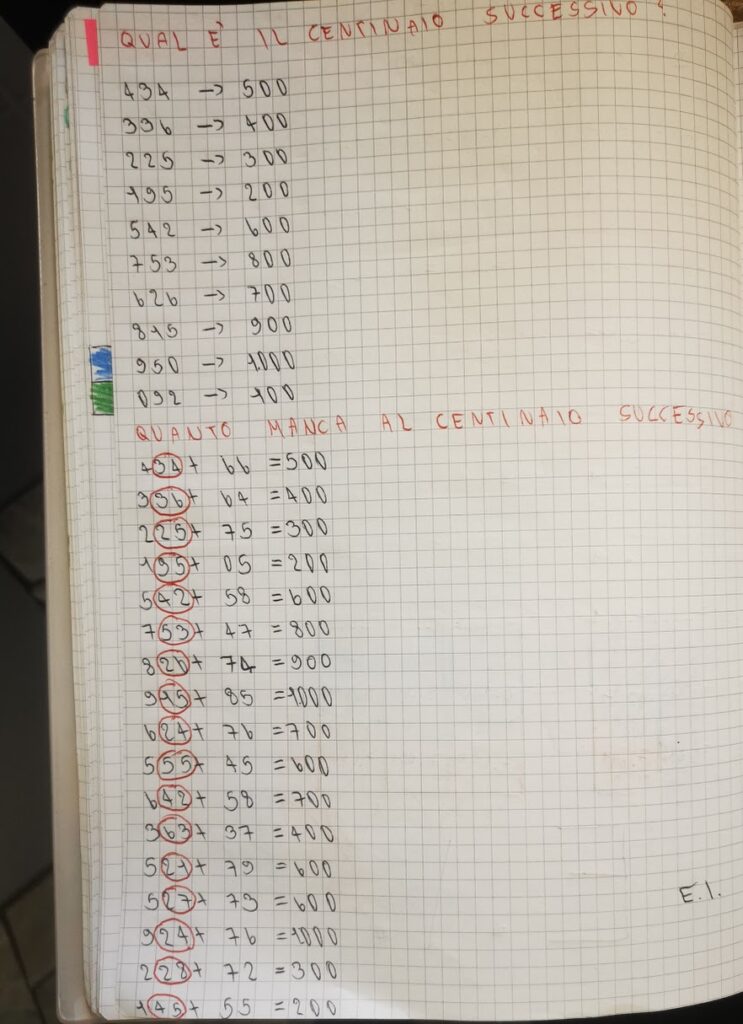 QUAL È IL CENTINAIO SUCCESSIVO?
434 -> 500
336 -> 400
225 -> 300
195 -> 200
542 -> 600
753 -> 800
626 -> 700
815 -> 900
950 -> 1.000
092 -> 100
QUANTO MANCA AL CENTINAIO SUCCESSIVO
434+ 66 =500
336+ 64 =400
225+ 75 =300
195+ 05 =200
542+ 58 =600
753+ 47 =800
826+ 74 =900
915+ 85 =1.000
624+ 76 =700
555+ 45 =600
642+ 58 =700
363+ 37 =400
521+ 79 =600
527+ 73 =600
E.I.
924+ 76 =1.000
228+ 72 =300
145+ 55 =200